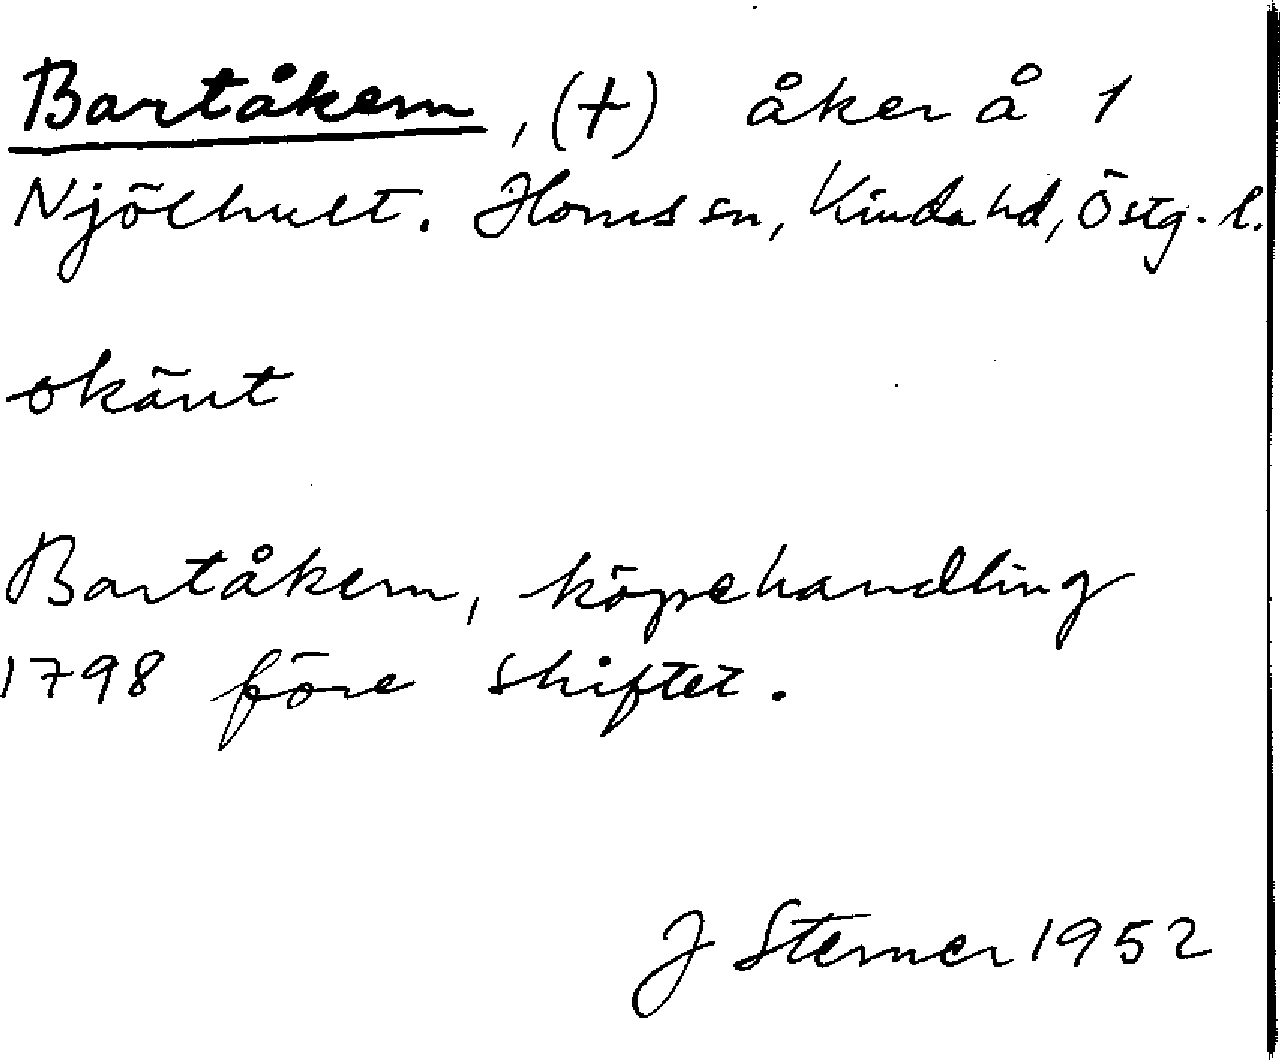 Bartåkern, (+) åker å 1
Njölhult. Horns sn, Kinda hd, Östg. l.
okänt
Bartåkern, köpehandling
1798 före skiftet.
J Sterner 1952